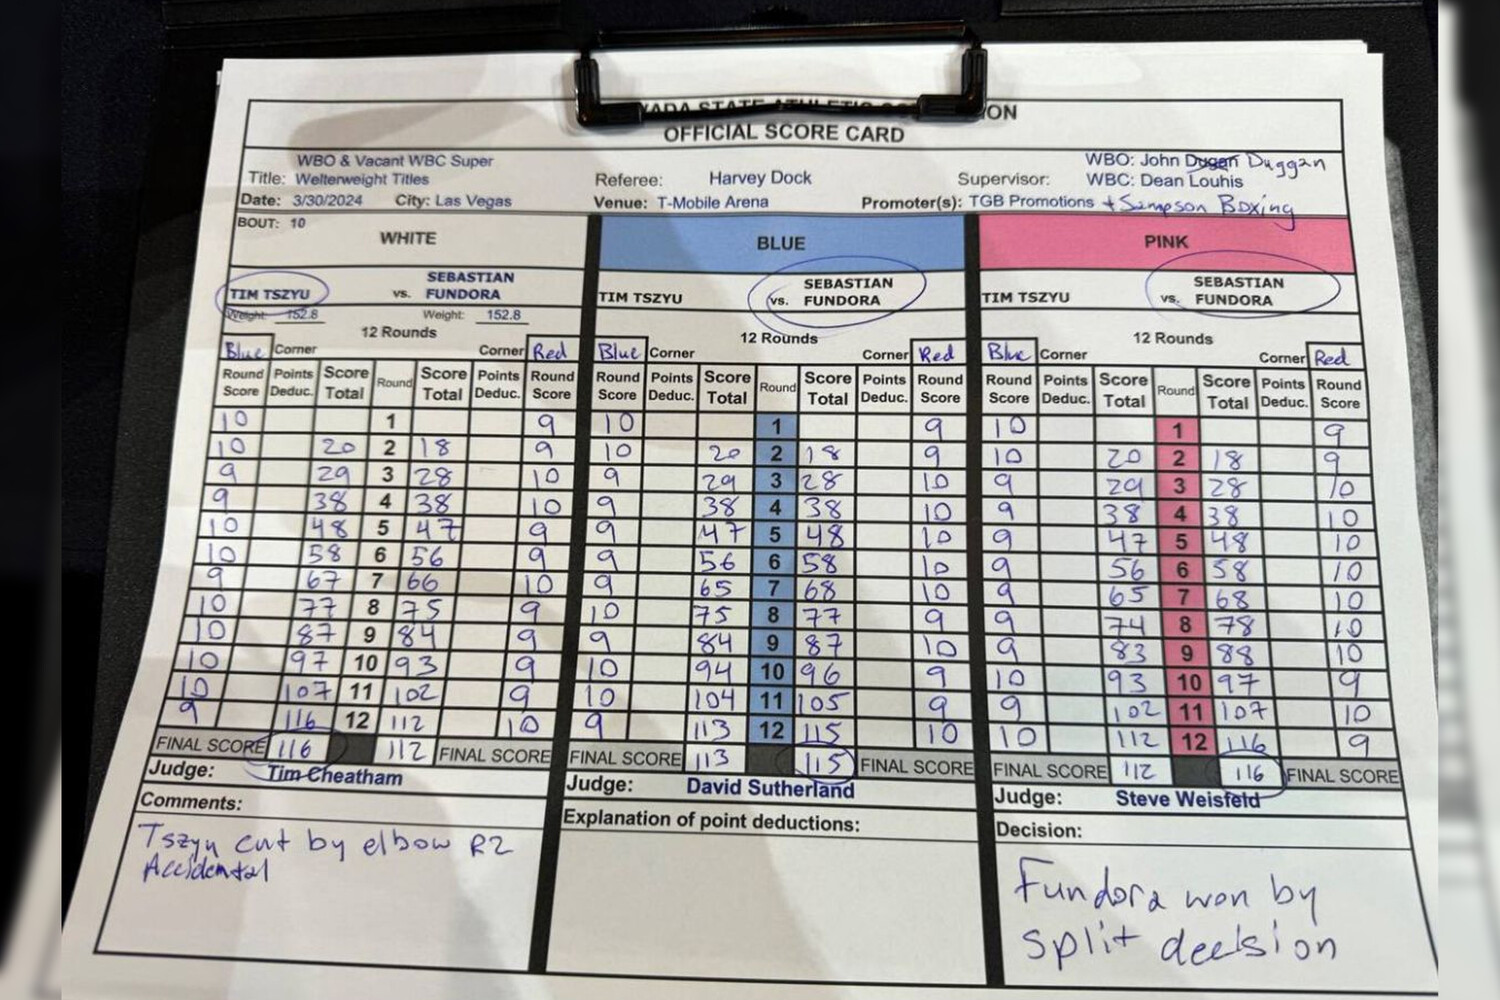 ADA STATE ATHLETIC CO ION
OFFICIAL SCORE CARD
WBO & Vacant WBC Super
Title: Welterweight Titles
Referee: Harvey Dock
Supervisor:
WBO: John Dugan Duggan
WBC: Dean Louhis
Date: 3/30/2024 City: Las Vegas Venue: T-Mobile Arena Promoter(s): TGB Promotions + Sampson Boxing
BOUT: 10
WHITE BLUE PINK
TIM TSZYU vs. SEBASTIAN FUNDORA
TIM TSZYU vs. SEBASTIAN FUNDORA
TIM TSZYU vs. SEBASTIAN FUNDORA
Weight: 152.8 Weight: 152.8
12 Rounds 12 Rounds 12 Rounds
Blue Corner Corner Red Blue Corner Corner Red Blue Corner Corner Red
Round Score Points Deduc. Score Total Round Score Total Points Deduc. Round Score
Round Score Points Deduc. Score Total Round Score Total Points Deduc. Round Score
Round Score Points Deduc. Score Total Round Score Total Points Deduc. Round Score
10 1 9 10 1 9 10 1 9
10 20 2 18 9 10 20 2 18 9 10 20 2 18 9
9 29 3 28 10 9 29 3 28 10 9 29 3 28 10
9 38 4 38 10 9 38 4 38 10 9 38 4 38 10
10 48 5 47 9 9 47 5 48 10 9 47 5 48 10
10 58 6 56 9 9 56 6 58 10 9 56 6 58 10
9 67 7 66 10 9 65 7 68 10 9 65 7 68 10
10 77 8 75 9 10 75 8 77 9 9 74 8 78 10
10 87 9 84 9 9 84 9 87 10 9 83 9 88 10
10 97 10 93 9 10 94 10 96 9 10 93 10 97 9
10 107 11 102 9 10 104 11 105 9 9 102 11 107 10
9 116 12 112 10 9 113 12 115 10 10 112 12 116 9
FINAL SCORE 116 112 FINAL SCORE FINAL SCORE 113 115 FINAL SCORE FINAL SCORE 112 116 FINAL SCORE
Judge: Tim Cheatham Judge: David Sutherland Judge: Steve Weisfeld
Comments:
Tszyu cut by elbow R2
Accidental
Explanation of point deductions:
Decision:
Fundora won by
split decision